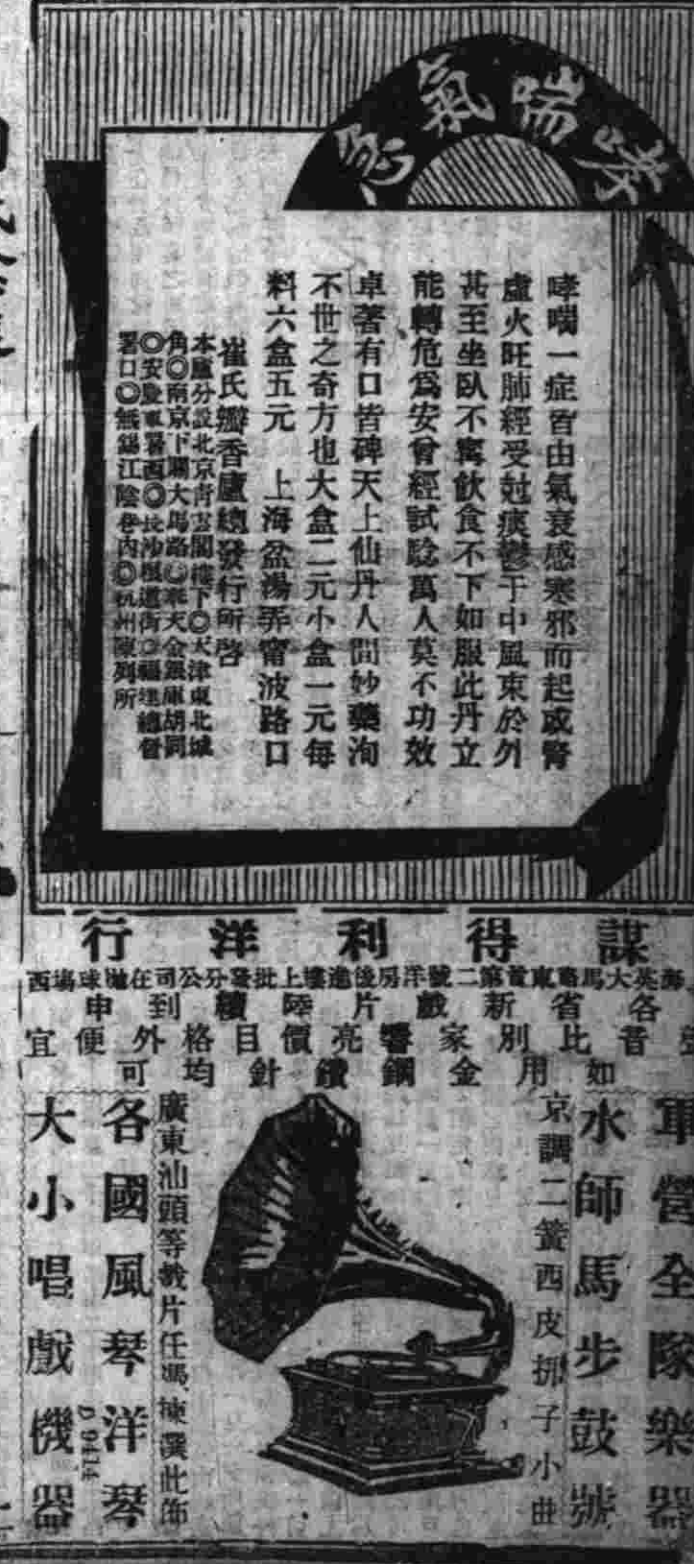 哮喘氣急
哮喘一症皆由氣衰感寒邪而起或腎
虛火旺肺經受尅痰鬱于中風束於外
甚至坐臥不寗飲食不下如服此丹立
能轉危爲安曾經試騐萬人莫不功效
卓著有口皆碑天上仙丹人間妙藥洵
不世之奇方也大盒二元小盒一元每
料六盒五元　上海盆湯弄甯波路口
崔氏瓣香廬總發行所啓
本廬分設北京靑雲閣樓下◎天津東北城
角◎南京下關大馬路◎奉天金銀庫胡同
◎安慶東署西◎長沙 道街◎福建總督
署口◎無錫江陰巷內◎杭州陳列所
謀得利洋行
海英大馬路東首第二號洋房後進樓上批發分公司在抛球塲西
各省新戲片陸續到申
昔比別家響亮價目格外便宜
如用金鋼鑽針均可
軍營全隊樂器
水師馬步鼓號
京調二簧西皮梆子小曲
廣東汕頭等戲片任憑揀選此佈
各國風琴洋琴
大小唱戲機器
D 9414